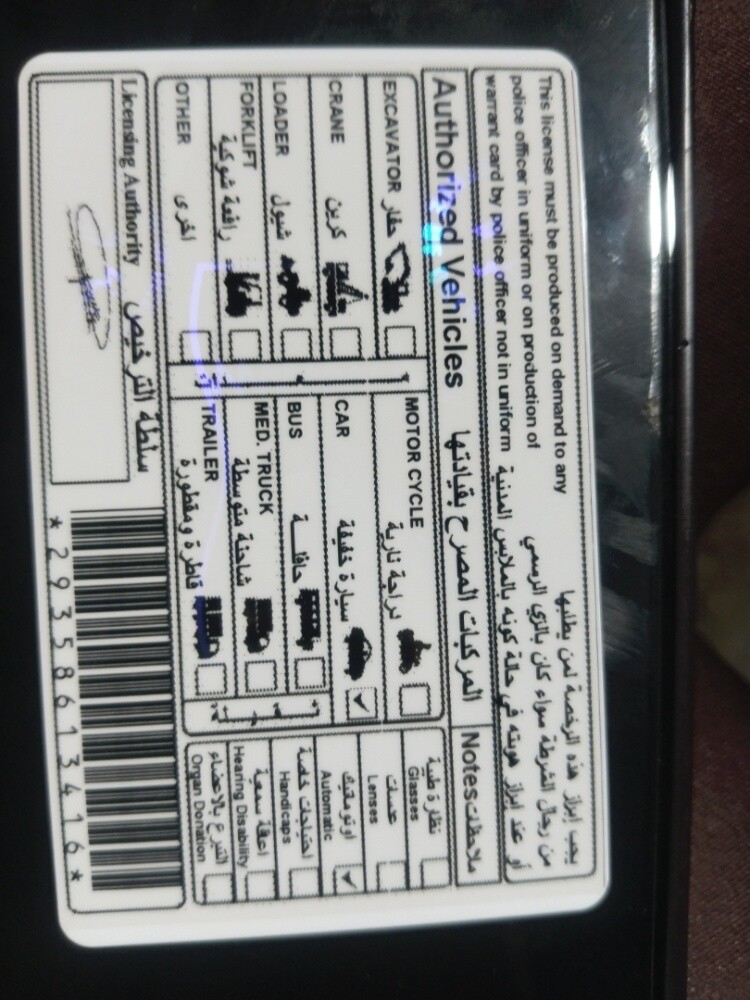 This license must be produced on demand to any
police officer in uniform or on production of
warrant card by police officer not in uniform
يجب إبراز هذه الرخصة لمن يطلبها
من رجال الشرطة سواء كان بالزي الرسمي
أو عند ابراز هويته في حالة كونه بالملابس المدنية
Authorized Vehicles المركبات المصرح بقيادتها
Notes ملاحظات
EXCAVATOR حفار
CRANE كرين
LOADER شيول
FORKLIFT رافعة شوكية
OTHER اخرى
MOTOR CYCLE دراجة نارية
CAR سيارة خفيفة
BUS حافلة
MED. TRUCK شاحنة متوسطة
TRAILER قاطرة ومقطورة
نظارة طبية
Glasses
عدسات
Lenses
اوتوماتيك
Automatic
احتياجات خاصة
Handicaps
اعاقة سمعية
Hearing Disability
التبرع بالاعضاء
Organ Donation
Licensing Authority سلطة الترخيص
*29358613416*